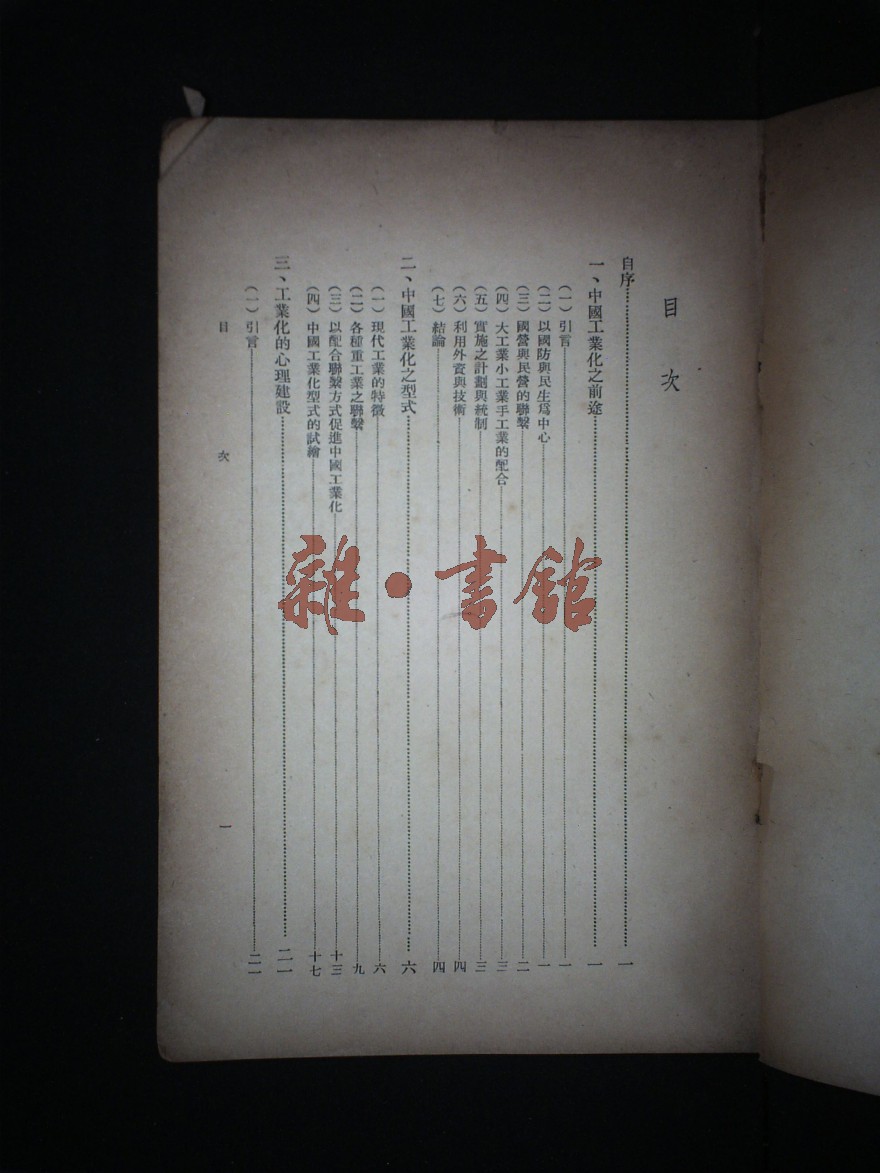 目次
自序……一
一、中國工業化之前途……一
(一)引言……一
(二)以國防與民生爲中心……一
(三)國營與民營的聯繫……二
(四)大工業小工業手工業的配合……三
(五)實施之計劃與統制……三
(六)利用外資與技術……四
(七)結論……四
二、中國工業化之型式……六
(一)現代工業的特徵……六
(二)各種重工業之聯繫……九
(三)以配合聯繫方式促進中國工業化……十三
(四)中國工業化型式的試繪……十七
三、工業化的心理建設……二一
(一)引言……二一
目次 一
雜·書館